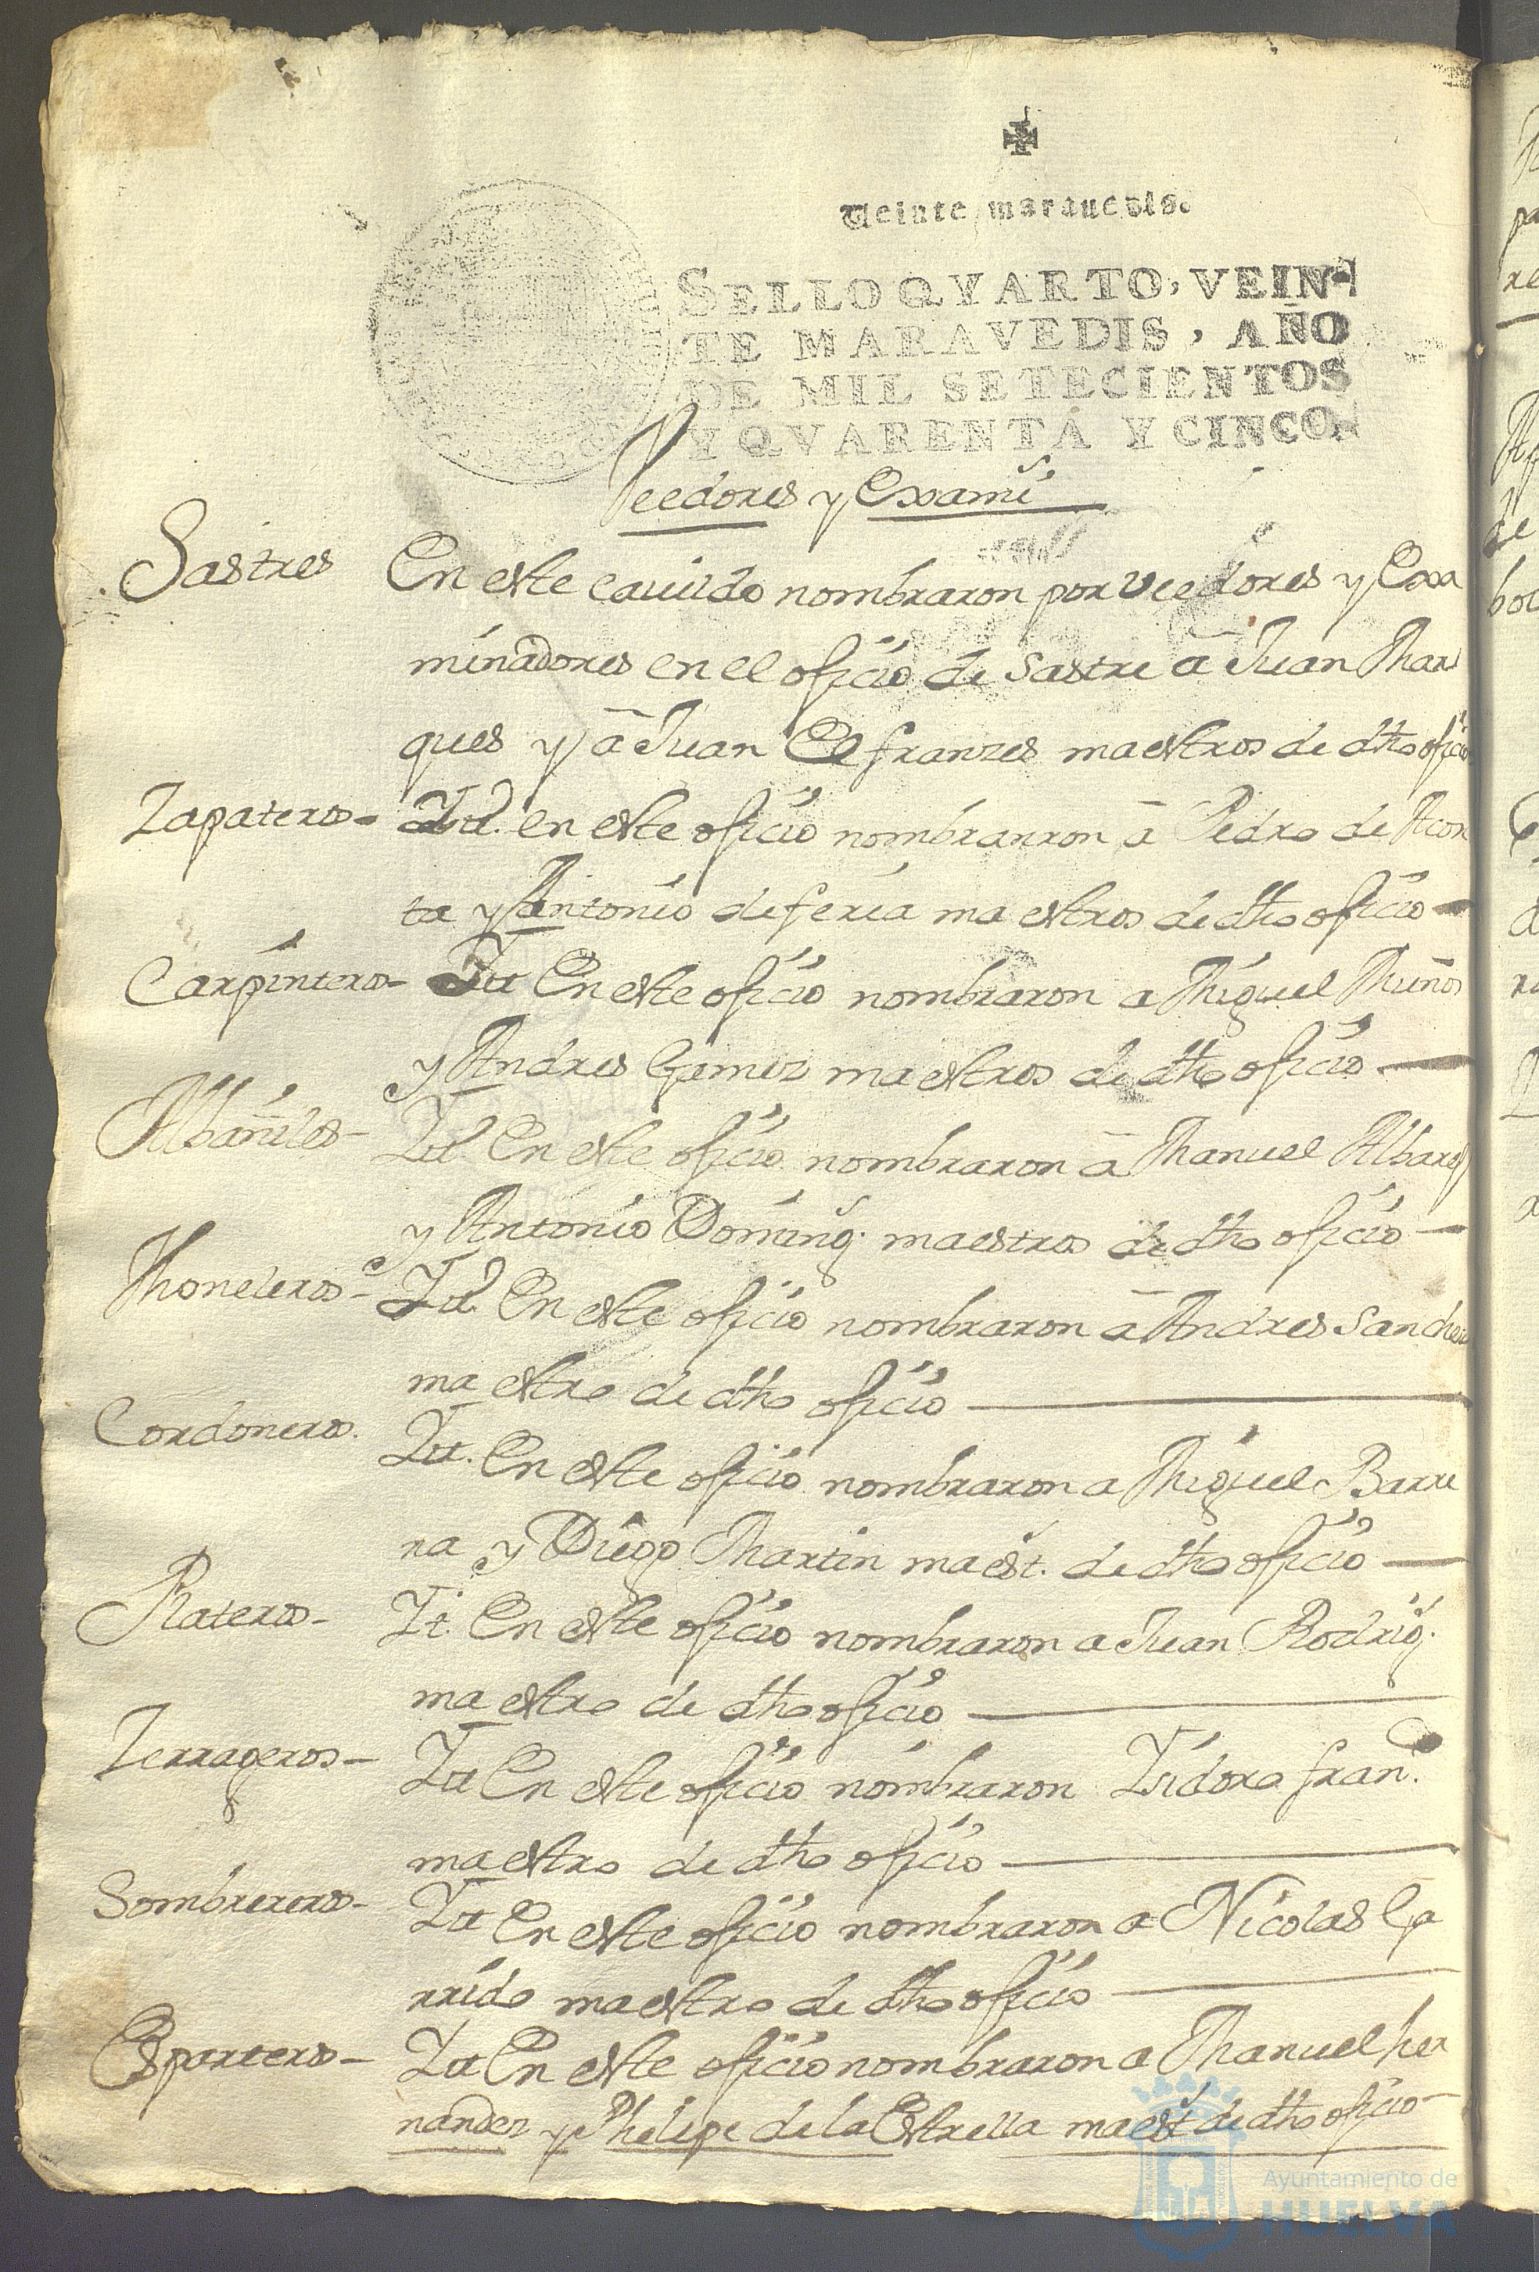 Veinte maravedis.
SELLO QVARTO, VEIN-
TE MARAVEDIS, AÑO
DE MIL SETECIENTOS
Y QVARENTA Y CINCO.
Veedores y Examẽ
Sastres En este cavildo nombraron por veedores y Exa
minadores en el oficio de sastre a Juan Mar
ques y a Juan El franzes maestros de dho oficio
Zapateros- Yd. en este oficio nombranron a Pedro de Acos
ta y Antonio de feria maestros de dho oficio-
Carpinteros- Yt En este oficio nombraron a Miguel Muños
y Andres Gomez maestros de dho oficio-
Albañiles- Yd. En este oficio nombraron a Manuel Albares
y Antonio Doming. maestros de dho oficio-
Thoneleros- Yd. En este oficio nombraron a Andres Sanches
maestro de dho oficio
Cordoneros. Yt. En este oficio nombraron a Miguel Barre
ra y Diego Martin maest. de dho oficio-
Plateros- Yt. En este oficio nombraron a Juan Rodrig.
maestro de dho oficio
Zerrageros- Yt En este oficio nombraron Ysidoro fran.co
maestro de dho oficio
Sombrereros- Yt En este oficio nombraron a Nicolas Ga
rrido maestro de dho oficio
Esparteros- Yt En este oficio nombraron a Manuel her
nandez y Phelipe de la Estrella maest. de dho oficio-
Ayuntamiento de
HUELVA